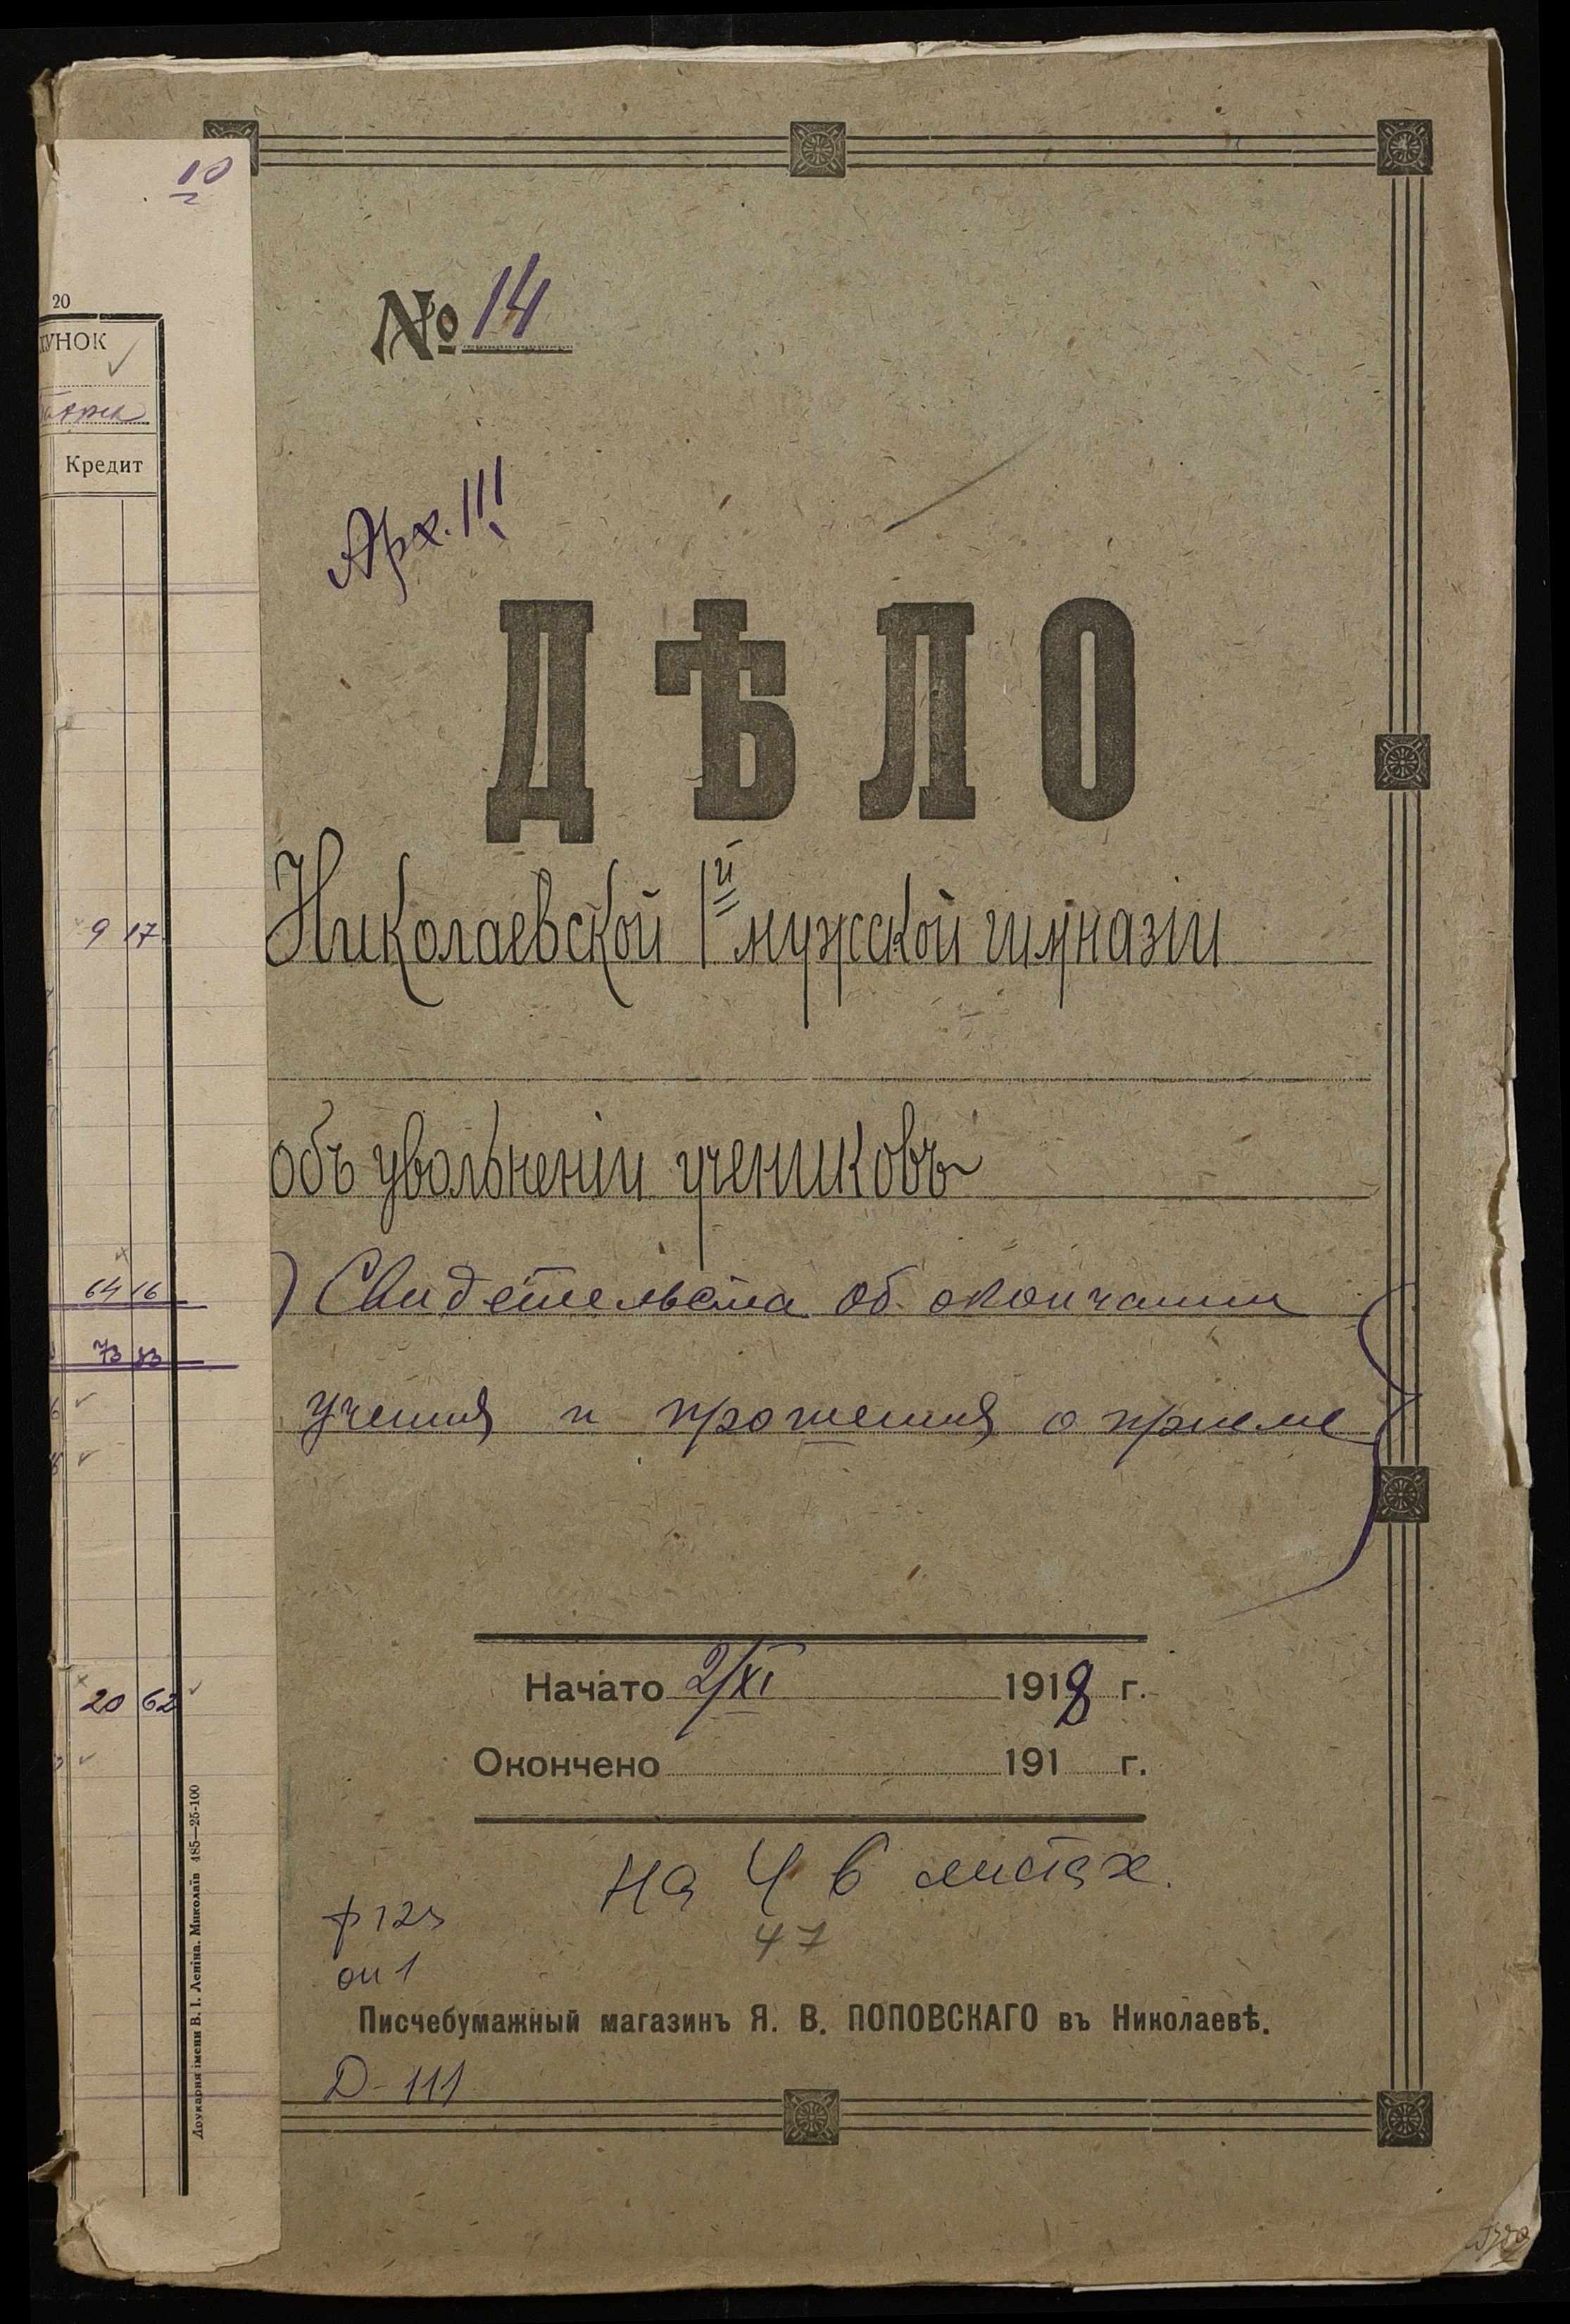 10
20
КУНОК
Кредит
9 17
64 16
73 33
20 62
Друкарня імени В. І. Леніна. Миколаїв 485—25-100
№ 14
Арх. III
ДѢЛО
Николаевской 1й мужской гимназіи
объ увольненіи учениковъ
) Свидетельства об окончании
учения и прошения о приеме
Начато 2/XI 1918 г.
Окончено 191 г.
на 46 листах.
47
ф 123
оп 1
Писчебумажный магазинъ Я. В. ПОПОВСКАГО въ Николаевѣ.
Д-111